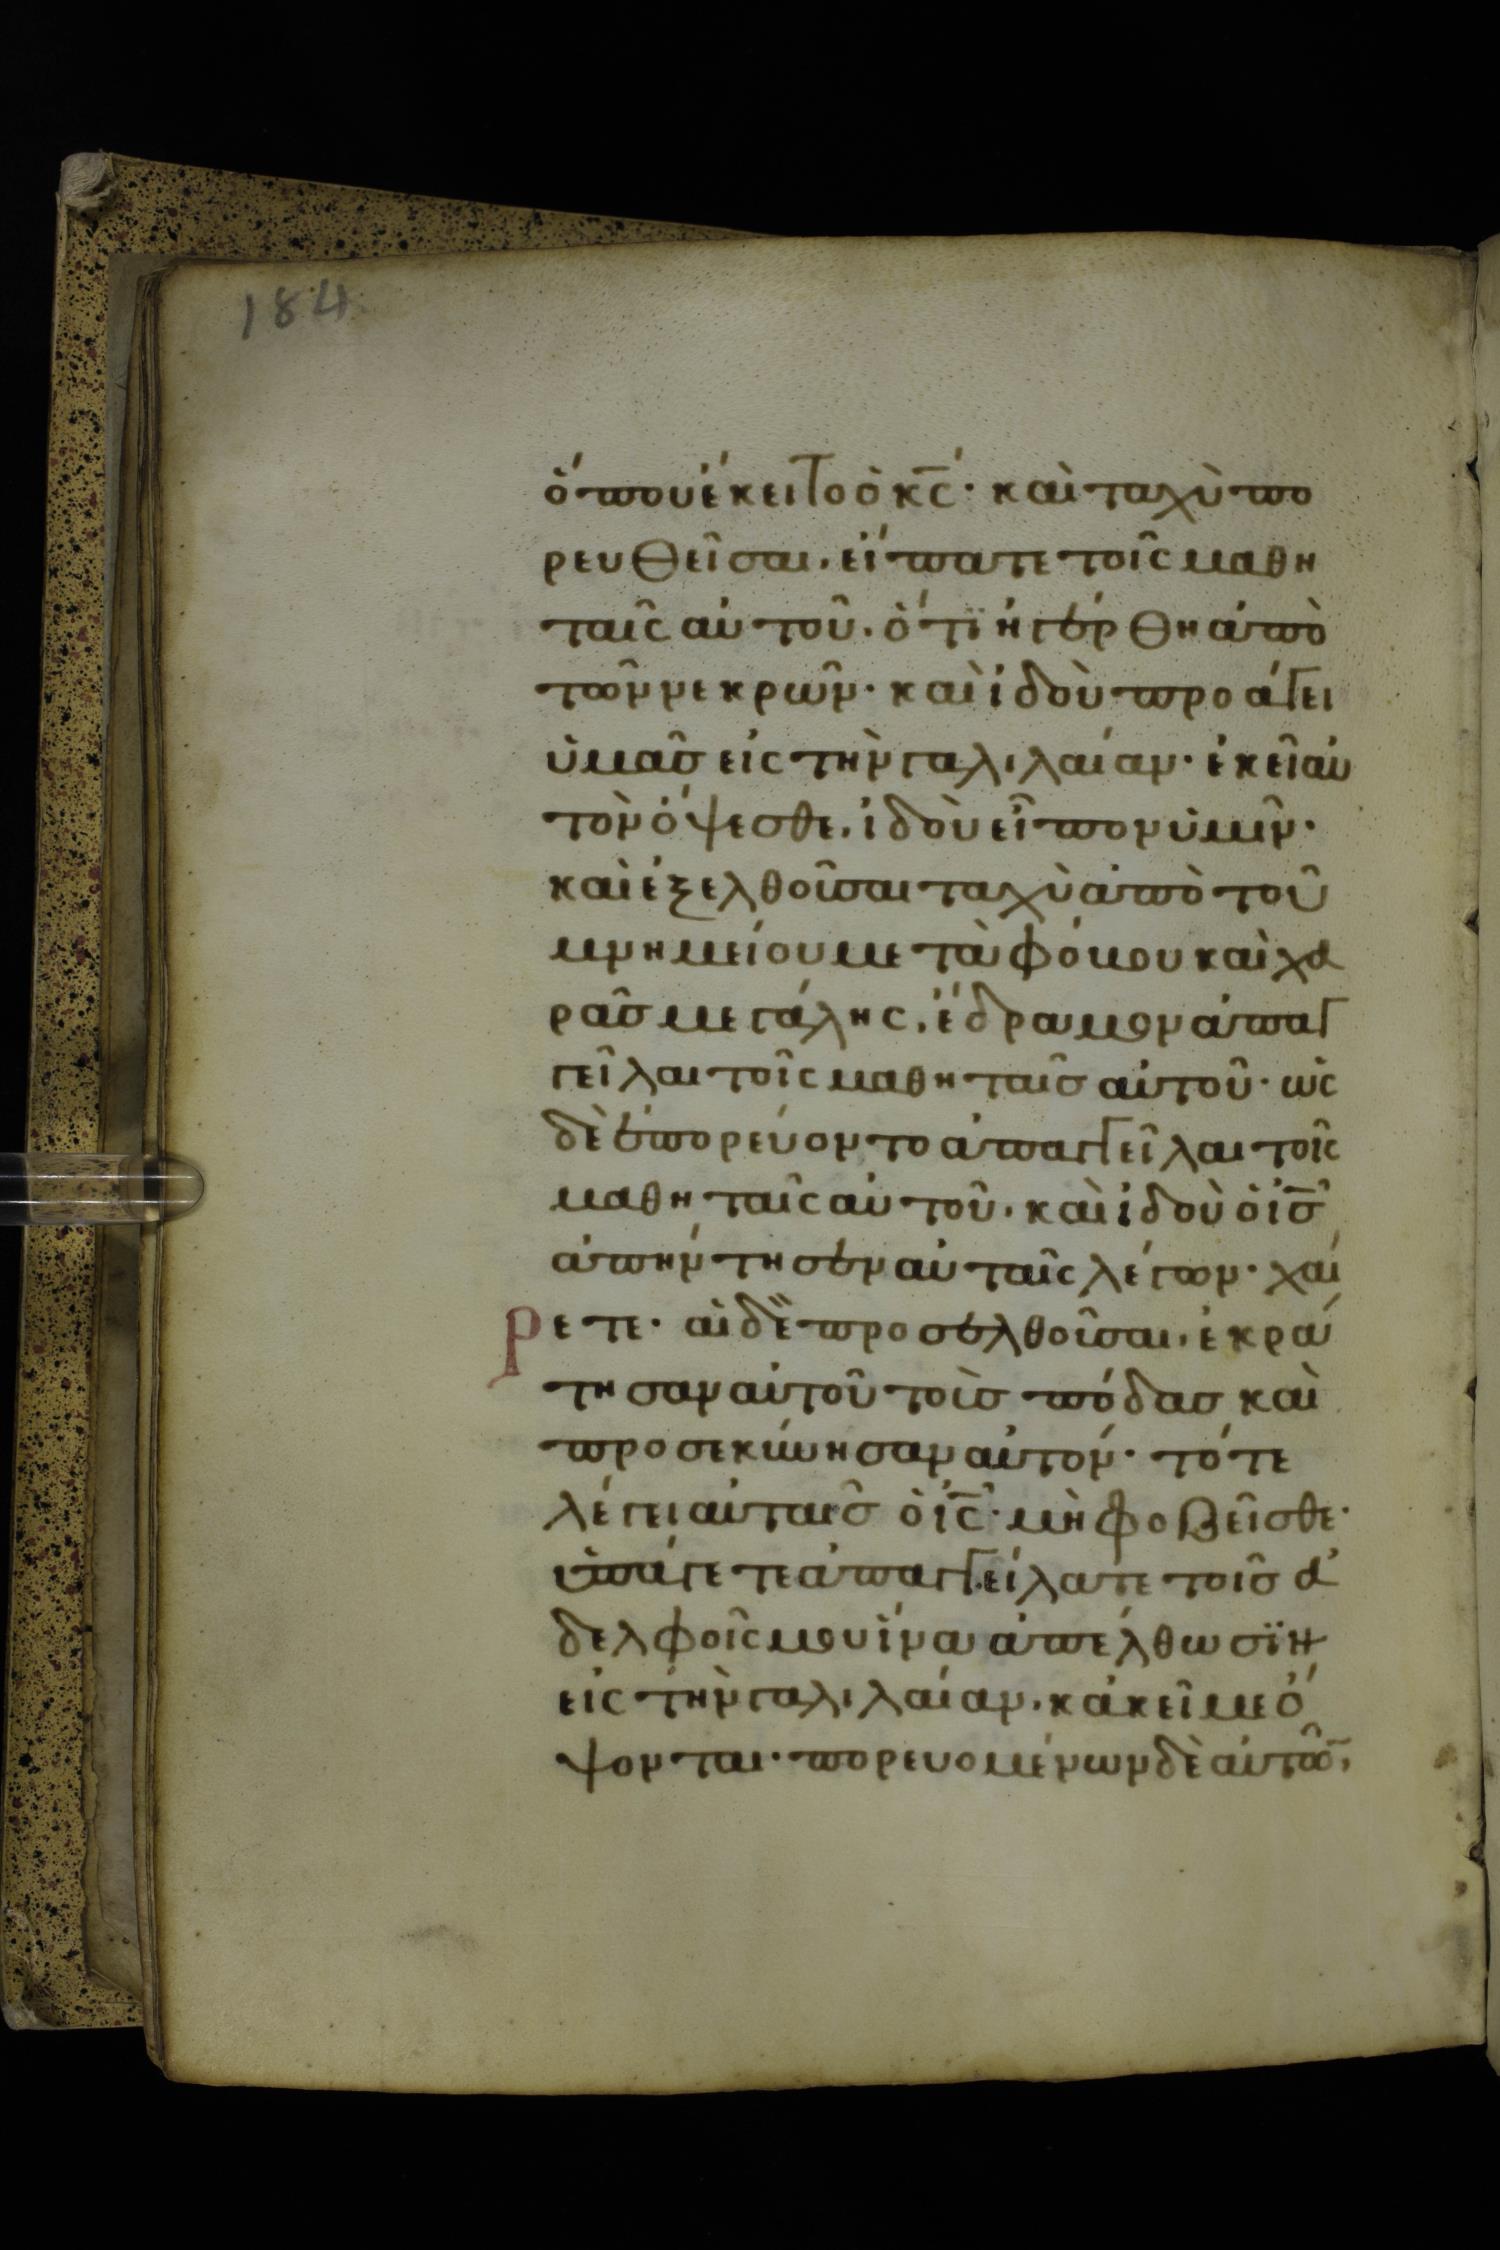 184
ὅπου ἔκειτο ὁ κ̅ς̅· καὶ ταχὺ πο
ρευθεῖσαι. εἴπατε τοῖς μαθη
ταῖς αὐτοῦ. ὅτϊ ἠγέρθη ἀπὸ
τῶν νεκρῶν· καὶ ἰδοὺ προάγει
ὑμᾶς εἰς τὴν γαλιλαίαν· ἐκεῖ αὐ
τὸν ὄψεσθε. ἰδοὺ εἶπον ὑμῖν·
καὶ ἐξελθοῦσαι ταχὺ ἀπὸ τοῦ
μνημείου μετὰ φόβου καὶ χα
ρᾶς μεγάλης. ἔδραμον ἀπαγ
γεῖλαι τοῖς μαθηταῖς αὐτοῦ· ὡς
δὲ ἐπορεύοντο ἀπαγγεῖλαι τοῖς
μαθηταῖς αὐτοῦ. καὶ ἰδοὺ ὁ ι̅ς̅
ἀπήντησεν αὐταῖς λέγων· χαί
ρετε· αἱ δὲ προσελθοῦσαι. ἐκρά
τησαν αὐτοῦ τοὺς πόδας καὶ
προσεκύνησαν αὐτόν· τότε
λέγει αὐταῖς ὁ ι̅ς̅· μὴ φοβεῖσθε·
ὑπάγετε ἀπαγγείλατε τοῖς ἀ
δελφοῖς μου ἵνα ἀπέλθωσϊν
εἰς τὴν γαλιλαίαν. κἀκεῖ με ὄ
ψονται· πορευομένων δὲ αὐτῶ̅.